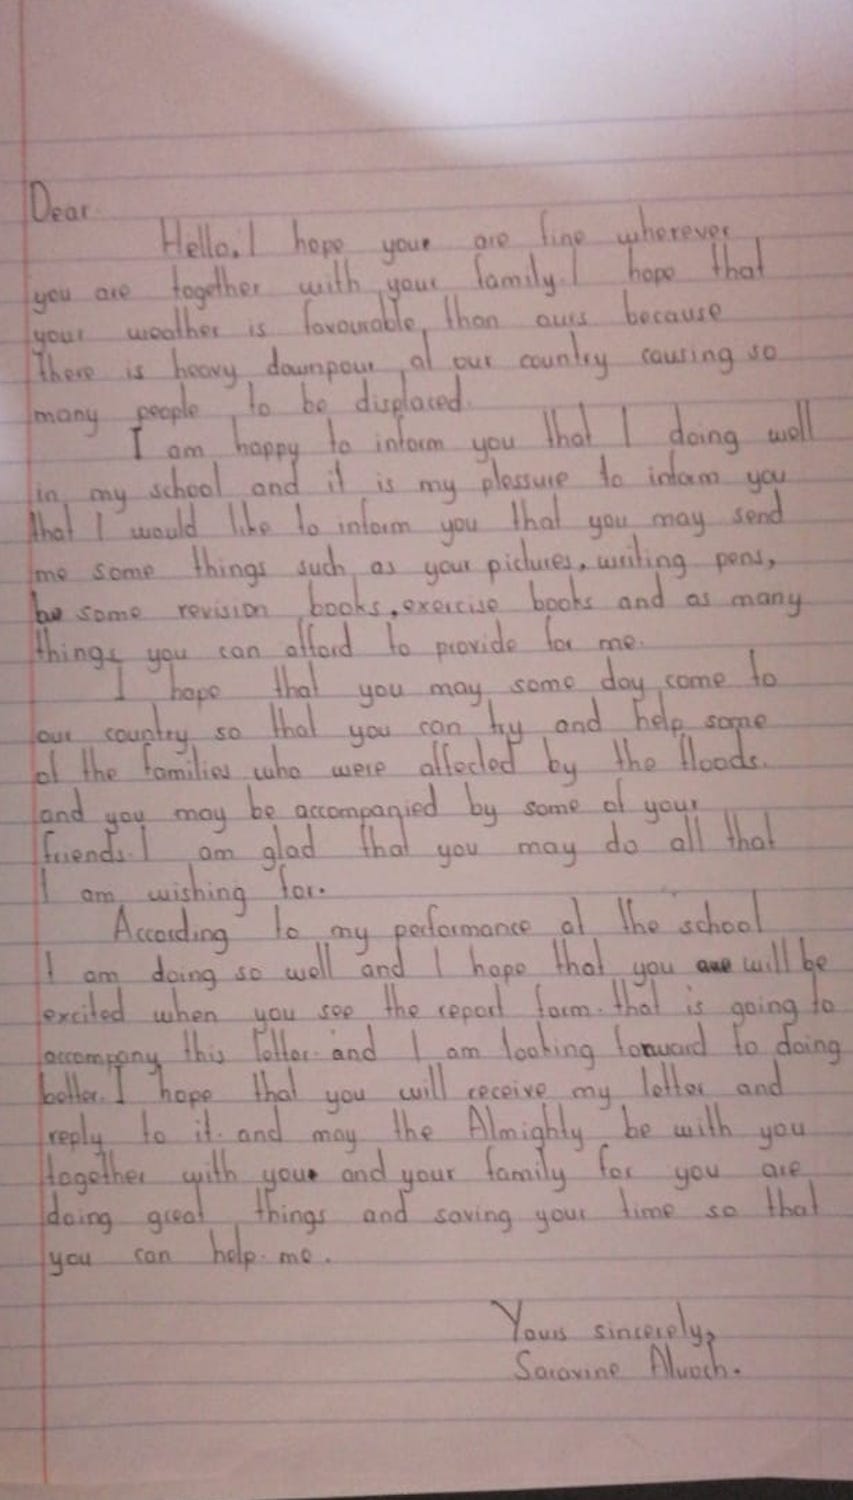 Dear.
Hello. I hope your are fine wherever
you are together with your family. I hope that
your weather is favourable than ours because
there is heavy downpour at our country causing so
many people to be displaced.
I am happy to inform you that I doing well
in my school and it is my plessure to inform you
that I would like to inform you that you may send
me some things such as your pictures, writing pens,
some revision books, exercise books and as many
things you can afford to provide for me.
I hope that you may some day come to
our country so that you can try and help some
of the families who were affected by the floods.
and you may be accompanied by some of your
friends. I am glad that you may do all that
I am wishing for.
According to my performance at the school
I am doing so well and I hope that you will be
excited when you see the report form. that is going to
accompany this letter. and I am looking forward to doing
better. I hope that you will receive my letter and
reply to it. and may the Almighty be with you
together with you and your family for you are
doing great things and saving your time so that
you can help me.
Yours sincerely,
Saravine Aluoch.